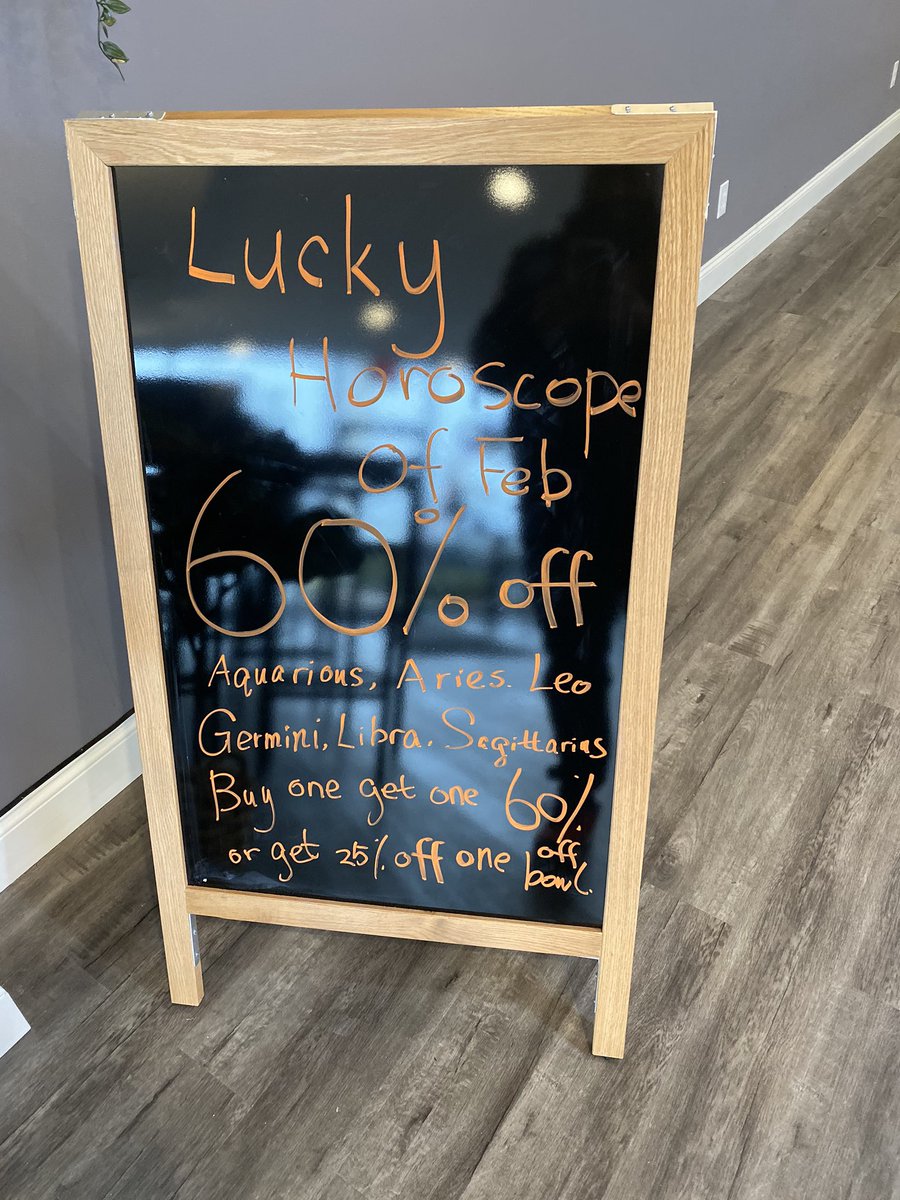 Lucky
Horoscope
Of Feb
60% off
Aquarious, Aries. Leo
Germini, Libra. Sagittarius
Buy one get one 60%
off
or get 25% off one bowl.